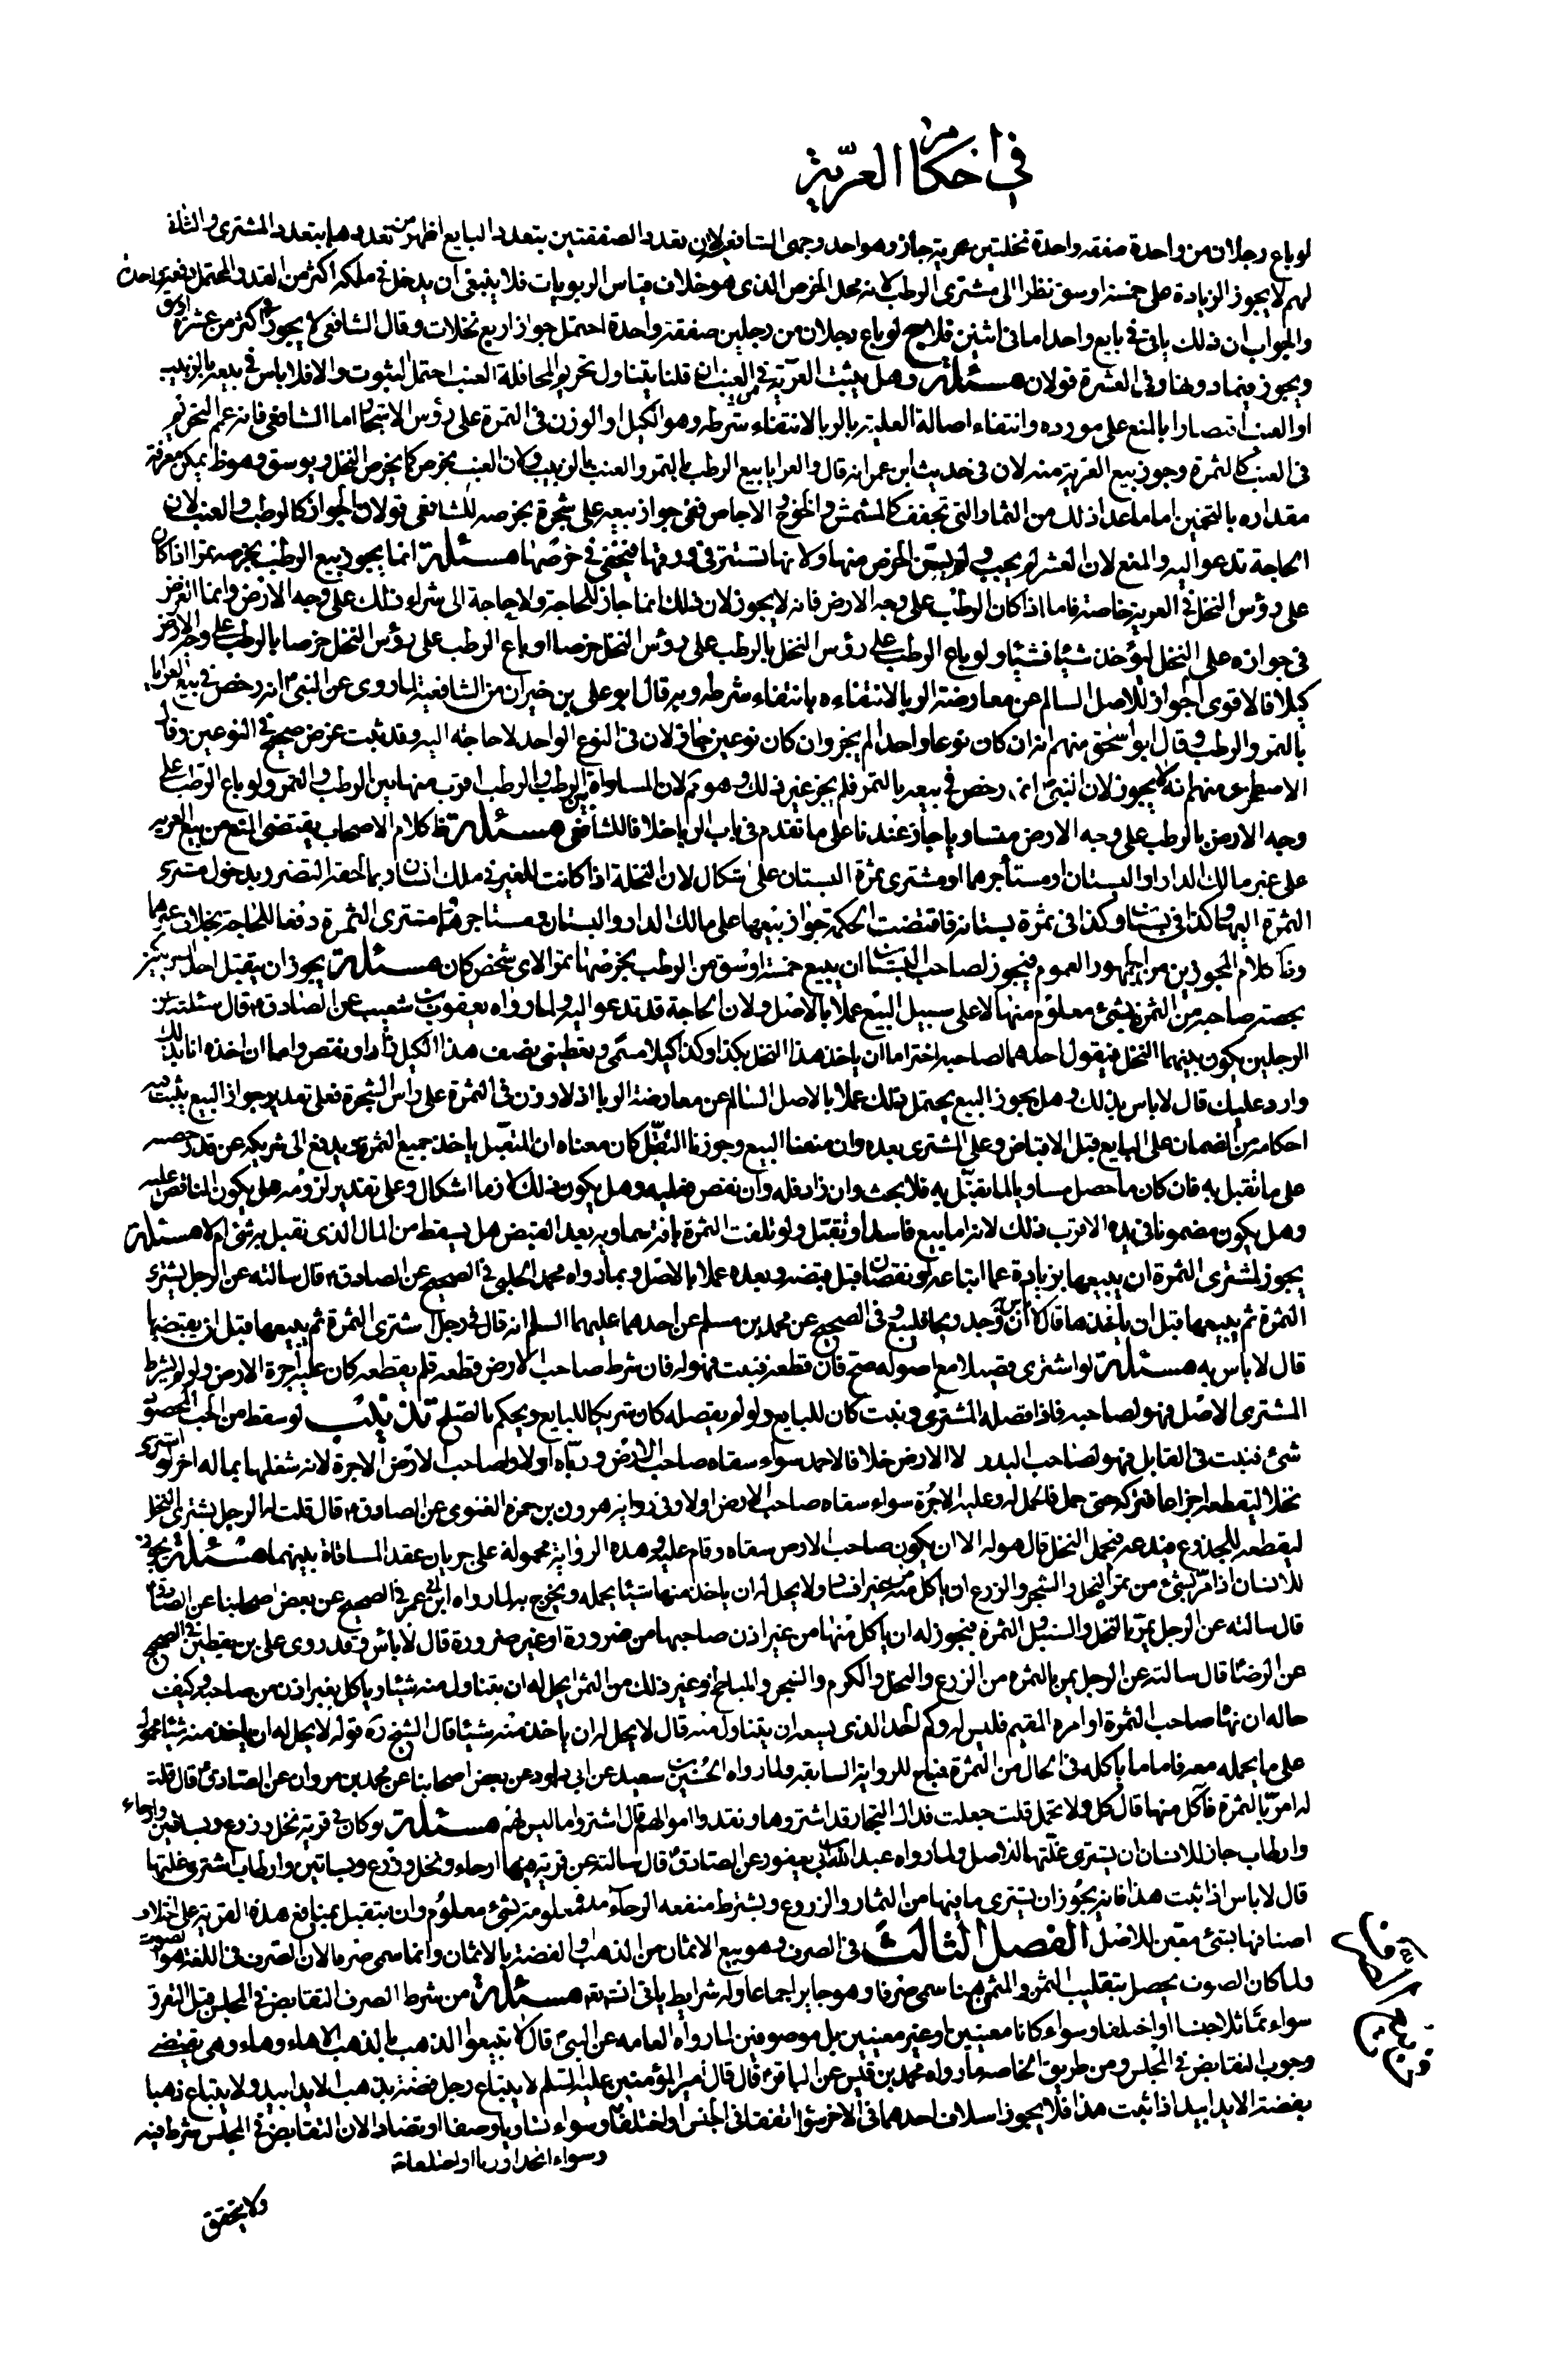 في احكام العريّة
لو باع رجلان من واحدة صفقه واحدة نخلتين عرية جاز وهو احد وجهى الشافعى لان تعدد الصفقتين بتعدد البايع اظهر من تعددها بتعدد المشترى والثانى
لهم لا يجوز الزيادة على خمسة اوسق نظرا الى مشترى الرطب لانه محل الخرص الذى هو خلاف قياس الربويات فلا ينبغى ان يدخل في ملكه اكثر من القدر المحتمل دفعة واحدة
والجواب ان ذلك ياتى في بايع واحد اما في اثنين فلا ج لو باع رجلان من رجلين صفقة واحدة احتمل جواز اربع نخلات وقال الشافعى لا يجوز في اكثر من عشرة اوسق
ويجوز فيما دونها وفي العشرة قولان مسئلة وهل يثبت العرية في العنب ان قلنا بتناول تحريم المحاقلة العنب احتمل الثبوت والا فلا باس في بيعه بالزبيب
او العنب اقتصارا بالمنع على مورده وانتفاء اصالة العلية بالربا لانتفاء شرطه وهو الكيل او الوزن في الثمرة على رؤس الاشجار اما الشافعى فانه عمم التحريم
في العنب كالثمرة وجوز بيع العرية منه لان في حديث ابن عمر انه قال والعرايا بيع الرطب بالتمر والعنب بالزبيب ولان العنب يخرص كما يخرص النخل ويوسق وهو ظ يمكن معرفة
مقداره بالتخمين اما ما عدا ذلك من الثمار التى تجفف كالمشمش والخوخ والاجاص ففى جواز بيعه على شجرة بخرصه للشافعى قولان الجواز كالرطب والعنب لان
الحاجة تدعو اليه والمنع لان العشر لم يجب ولم يسن الخرص منها ولانها تستتر في ورقها فيخفى في خرصها مسئلة انما يجوز بيع الرطب بخرصه تمرا اذا كان
على رؤس النخل في العرية خاصة فاما اذا كان الرطب على وجه الارض فانه لا يجوز لان ذلك انما جاز للحاجة ولا حاجة الى شراء ذلك على وجه الارض وانما الغرض
في جوازه على النخل ليؤخذ شيئا فشيئا ولو باع الرطب على رؤس النخل بالرطب على رؤس النخل خرصا او باع الرطب على رؤس النخل خرصا بالرطب على وجه الارض
كيلا فالاقوى الجواز للاصل السالم عن معارضة الربا لانتفاءه بانتفاء شرطه وبه قال ابو على بن خيران من الشافعية لما روى عن النبى ص انه رخص في بيع العرايا
بالتمر والرطب وقال ابو اسحق منهم انه ان كان نوعا واحدا لم يجز وان كان نوعين جاز لان في النوع الواحد لا حاجة اليه وقد ثبت غرض صحيح في النوعين وقال
الاصطخرى منهم انه لا يجوز لان النبى ص انما رخص في بيعه بالتمر فلم يجز غير ذلك وهو لان المساواة بين الرطب والرطب اقرب منها بين الرطب والتمر ولو باع الرطب على
وجه الارض بالرطب على وجه الارض متساويا جاز عندنا على ما تقدم في باب الربا خلافا للشافعى مسئلة ظ كلام الاصحاب يقتضى المنع من بيع العرية
على غير مالك الدار او البستان او مستأجرهما او مشترى ثمرة البستان على اشكال لان النخلة اذا كانت للغير في ملك انسان ربما لحقه التضرر بدخول مشترى
الثمرة اليها وكذا في بستانه وكذا في ثمرة بستانه فاقتضت الحكمة جواز بيعها على مالك الدار والبستان ومستاجرهما ومشترى الثمرة دفعا للحاجة بخلاف غيرهما
وظ كلام المجوزين من الجمهور العموم فيجوز لصاحب البستان ان يبيع خمسة اوسق من الرطب بخرصها تمرا لاى شخص كان مسئلة يجوز ان يتقبل احد الشريكين
بحصة صاحبه من الثمرة بشئ معلوم منها لا على سبيل البيع عملا بالاصل ولان الحاجة قد تدعو اليه ولما رواه يعقوب بن شعيب عن الصادق ع قال سئلته عن
الرجلين يكون بينهما النخل فيقول احدهما لصاحبه اختر اما ان ياخذ هذا النخل بكذا وكذا كيلا مسمى وتعطينى نصف هذا الكيل زاد او نقص واما ان اخذه انا بذلك
وارد عليك قال لا باس بذلك وهل يجوز البيع يحتمل ذلك عملا بالاصل السالم عن معارضة الربا اذ لا وزن في الثمرة على راس الشجرة فعلى تقدير جواز البيع يثبت فيه
احكامه من الضمان على البايع قبل الاقباض وعلى المشترى بعده وان منعنا البيع وجوزنا التقبل كان معناه ان المتقبل ياخذ جميع الثمرة ويدفع الى شريكه عن قدر حصته
على ما تقبل به فان كان ما حصل مساويا لما تقبل به فلا بحث وان زاد فله وان نقص فعليه وهل يكون ذلك لازما اشكال وعلى تقدير لزومه هل يكون الناقص عليه
وهل يكون مضمونا في يده الاقرب ذلك لانه اما بيع فاسد او تقبل ولو تلفت الثمرة بافة سماوية بعد القبض هل يسقط من المال الذى تقبل به شئ ام لا مسئلة
يجوز لمشترى الثمرة ان يبيعها بزيادة عما ابتاعه او نقصان قبل قبضه وبعده عملا بالاصل وبما رواه محمد الحلبى في الصحيح عن الصادق ع قال سالته عن الرجل يشترى
الثمرة ثم يبيعها قبل ان ياخذها قال لا باس به ان وجد ربحا فليبع وفي الصحيح عن محمد بن مسلم عن احدهما عليهما السلم انه قال في رجل اشترى الثمرة ثم يبيعها قبل ان يقبضها
قال لا باس به مسئلة لو اشترى قصيلا مع اصوله صح فان قطعه فنبت فهو له فان شرط صاحب الارض قطعه فلم يقطعه كان عليه اجرة الارض ولو لم يشترط
المشترى الاصل فهو لصاحبه فاذا قصله المشترى ونبت كان للبايع ولو لم يقصله كان شريكا للبايع ويحكم بالصلح تذنيب لو سقط من الحب المحصود
شئ فنبت في القابل فهو لصاحب البذر لا الارض خلافا لاحمد سواء سقاه صاحب الارض ورباه او لا ولصاحب الارض الاجرة لانه شغلها بماله اخر لو اشترى
نخلا ليقطعه اجذاعا فتركه حتى حمل فالحمل له وعليه الاجرة سواء سقاه صاحب الارض او لا وفي رواية هرون بن حمزة الغنوى عن الصادق ع قال قلت له الرجل يشترى النخل
ليقطعه للجذوع فيدعه فيحمل النخل قال هو له الا ان يكون صاحب الارض سقاه وقام عليه وهذه الرواية محمولة على جريان عقد المساقاة بينهما مسئلة يجوز
للانسان اذا مر بشئ من ثمر النخل والشجر والزرع ان ياكل منه من غير افساد ولا يحل له ان ياخذ منها شيئا يحمله ويخرج به لما رواه ابن ابى عمير في الصحيح عن بعض اصحابنا عن الصادق ع
قال سالته عن الرجل يمر بالنخل والسنبل والثمرة فيجوز له ان ياكل منها من غير اذن صاحبها من ضرورة او غير ضرورة قال لا باس وقد روى على بن يقطين في الصحيح
عن الرضا ع قال سالته عن الرجل يمر بالثمرة من الزرع والنخل والكرم والشجر والمباطخ وغير ذلك من الثمر ايحل له ان يتناول منه شيئا وياكل بغير اذن من صاحبه وكيف
حاله ان نهاه صاحب الثمرة او امره القيم فليس له وكم الحد الذى يسعه ان يتناول منه قال لا يحل له ان ياخذ منه شيئا قال الشيخ ره قوله لا يحل له ان ياخذ منه شيئا محمول
على ما يحمله معه فاما ما ياكله في الحال من الثمرة فمباح للرواية السابقة ولما رواه الحسين بن سعيد عن ابى داود عن بعض اصحابنا عن محمد بن مروان عن الصادق ع قال قلت
له امر بالثمرة فآكل منها قال كل ولا تحمل قلت جعلت فداك التجار قد اشتروها ونقدوا اموالهم قال اشتروا ما ليس لهم مسئلة لو كان في قرية نخل وزرع وبساتين وارحاء
وارطاب جاز للانسان ان يشترى غلتها للاصل ولما رواه عبد الله بن ابى يعفور عن الصادق ع قال سالته عن قرية فيها ارحاء ونخل وزرع وبساتين وارطاب اشترى غلتها
قال لا باس اذا ثبت هذا فانه يجوز ان يشترى ما فيها من الثمار والزروع ويشترط منفعه الرحاء مدة معلومة بشئ معلوم وان يتقبل بمنافع هذه القرية على اختلاف
اصنافها بشئ معين للاصل الفصل الثالث في الصرف وهو بيع الاثمان من الذهب والفضة بالاثمان وانما سمى صرفا لان الصرف في اللغة هو الصوت
ولما كان الصوت يحصل بتقليب الثمن والثمن هنا سمى صرفا وهو جايز اجماعا وله شرايط ياتى انشاء الله تع مسئلة من شرط الصرف التقابض في المجلس قبل التفرق
سواء تماثلا جنسا او اختلفا وسواء كانا معينين او غير معينين بل موصوفين لما رواه العامه عن النبى ص قال لا تبيعوا الذهب بالذهب الا هاء وهاء وهى يقتضى
وجوب التقابض في المجلس ومن طريق الخاصه ما رواه محمد بن قيس عن الباقر ع قال قال امير المؤمنين عليه السلم لا يبتاع رجل فضة بذهب الا يدا بيد ولا يبتاع ذهبا
بفضة الا يدا بيد اذا ثبت هذا فلا يجوز اسلاف احدهما في الاخر سواء اتفقا في الجنس او اختلفا وسواء تساويا وصفا او تضادا لان التقابض في المجلس شرط فيه
وسواء اتحدا وزنا او اختلفا
ولا يتحقق